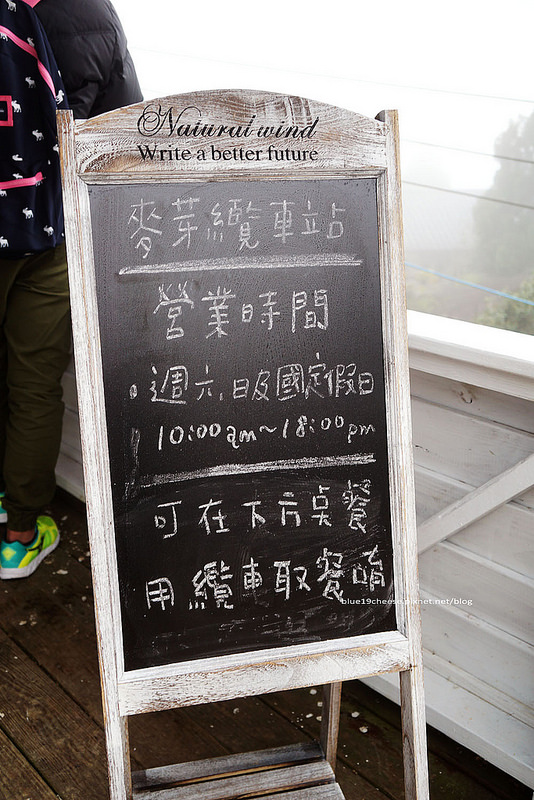 Natural wind
Write a better future
麥芽纜車站
營業時間
週六、日及國定假日
10:00am~18:00pm
可在下方點餐
用纜車取餐唷
blue19cheese.pixnet.net/blog